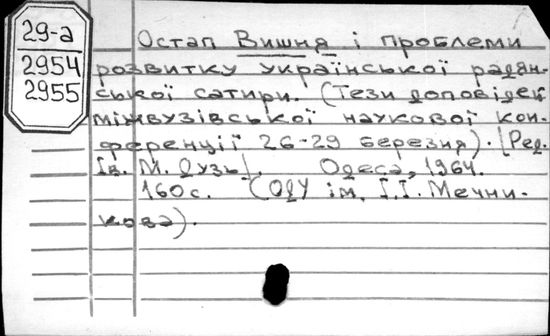 29-а
2954
2955
Остап Вишня і проблеми
розвитку української радян-
ської сатири. (Тези доповідей
міжвузівської наукової кон-
ференції 26-29 березня). [Ред.
Ів. М. Дузь]. Одеса, 1964.
160 с. (ОДУ ім. І.І. Мечни-
кова).